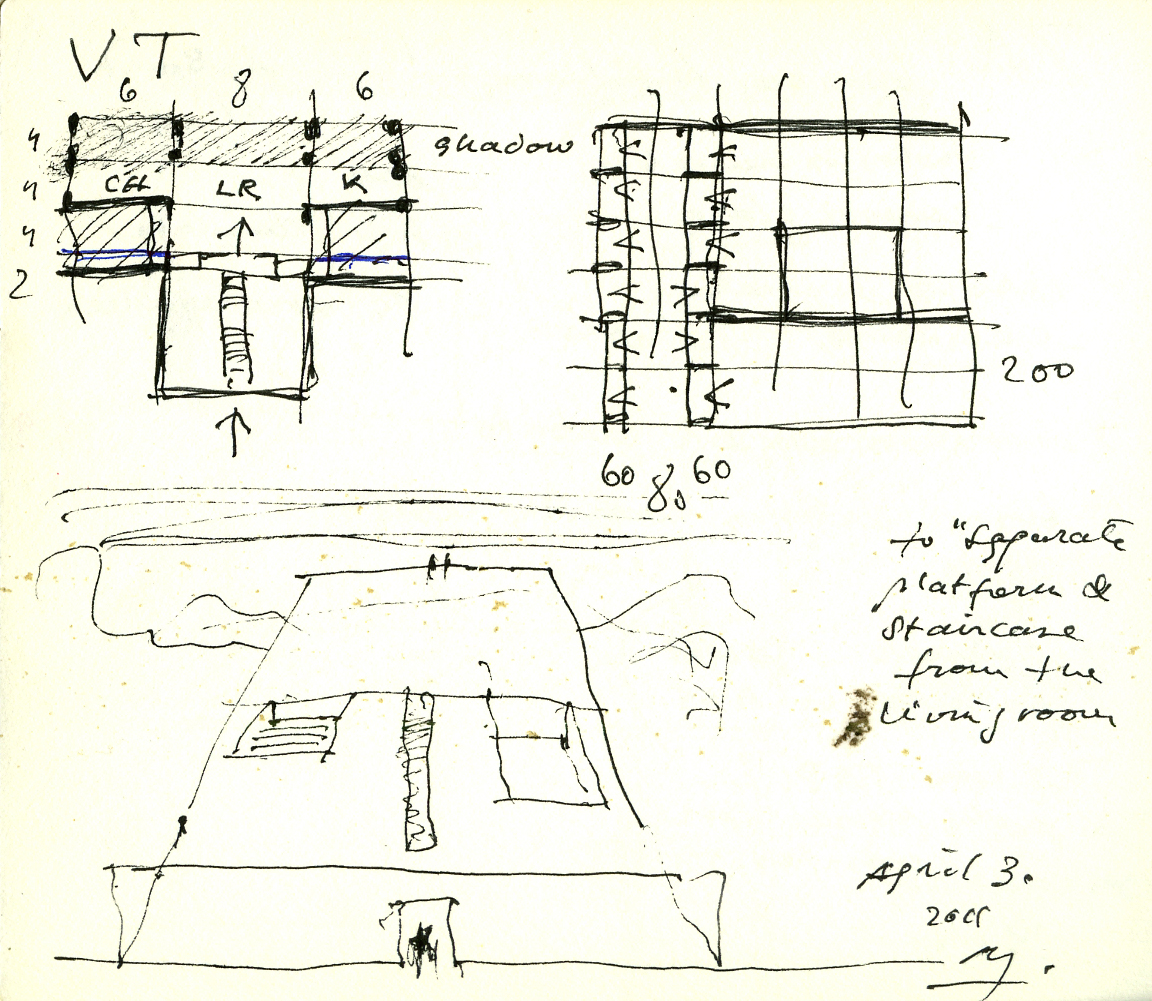 VT
6 8 6
4
4
4
2
shadow
CEL LR K
200
60 80 60
to "separate
platform &
staircase
from the
living room
April 3.